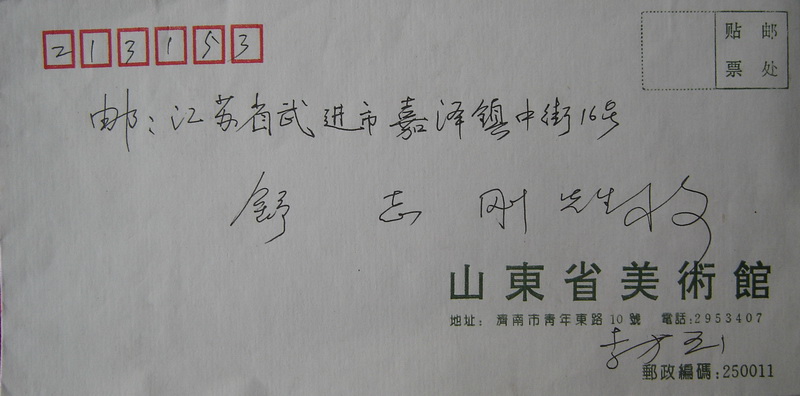 213153
贴 邮
票 处
邮：江苏省武进市嘉泽镇中街16号
舒志刚先生收
山東省美術館
地址：濟南市青年東路10號 電話:2953407
李方玉
郵政編碼:250011